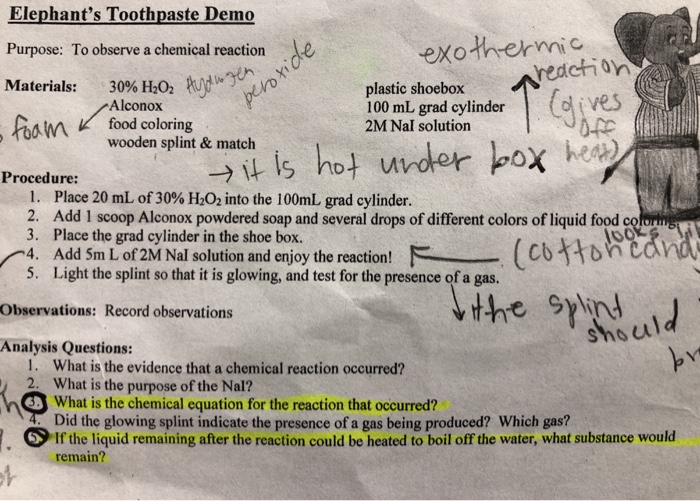 Elephant's Toothpaste Demo
Purpose: To observe a chemical reaction
exothermic
reaction
(gives
off
heat)
Materials: 30% H₂O₂ Hydrogen peroxide
Alconox
food coloring
wooden splint & match
foam
plastic shoebox
100 mL grad cylinder
2M NaI solution
→ it is hot under box
Procedure:
1. Place 20 mL of 30% H₂O₂ into the 100mL grad cylinder.
2. Add 1 scoop Alconox powdered soap and several drops of different colors of liquid food coloring.
3. Place the grad cylinder in the shoe box.
4. Add 5m L of 2M NaI solution and enjoy the reaction!
looks
(cotton
5. Light the splint so that it is glowing, and test for the presence of a gas.
the splint
should
Observations: Record observations
Analysis Questions:
1. What is the evidence that a chemical reaction occurred?
2. What is the purpose of the NaI?
3. What is the chemical equation for the reaction that occurred?
4. Did the glowing splint indicate the presence of a gas being produced? Which gas?
5. If the liquid remaining after the reaction could be heated to boil off the water, what substance would
remain?